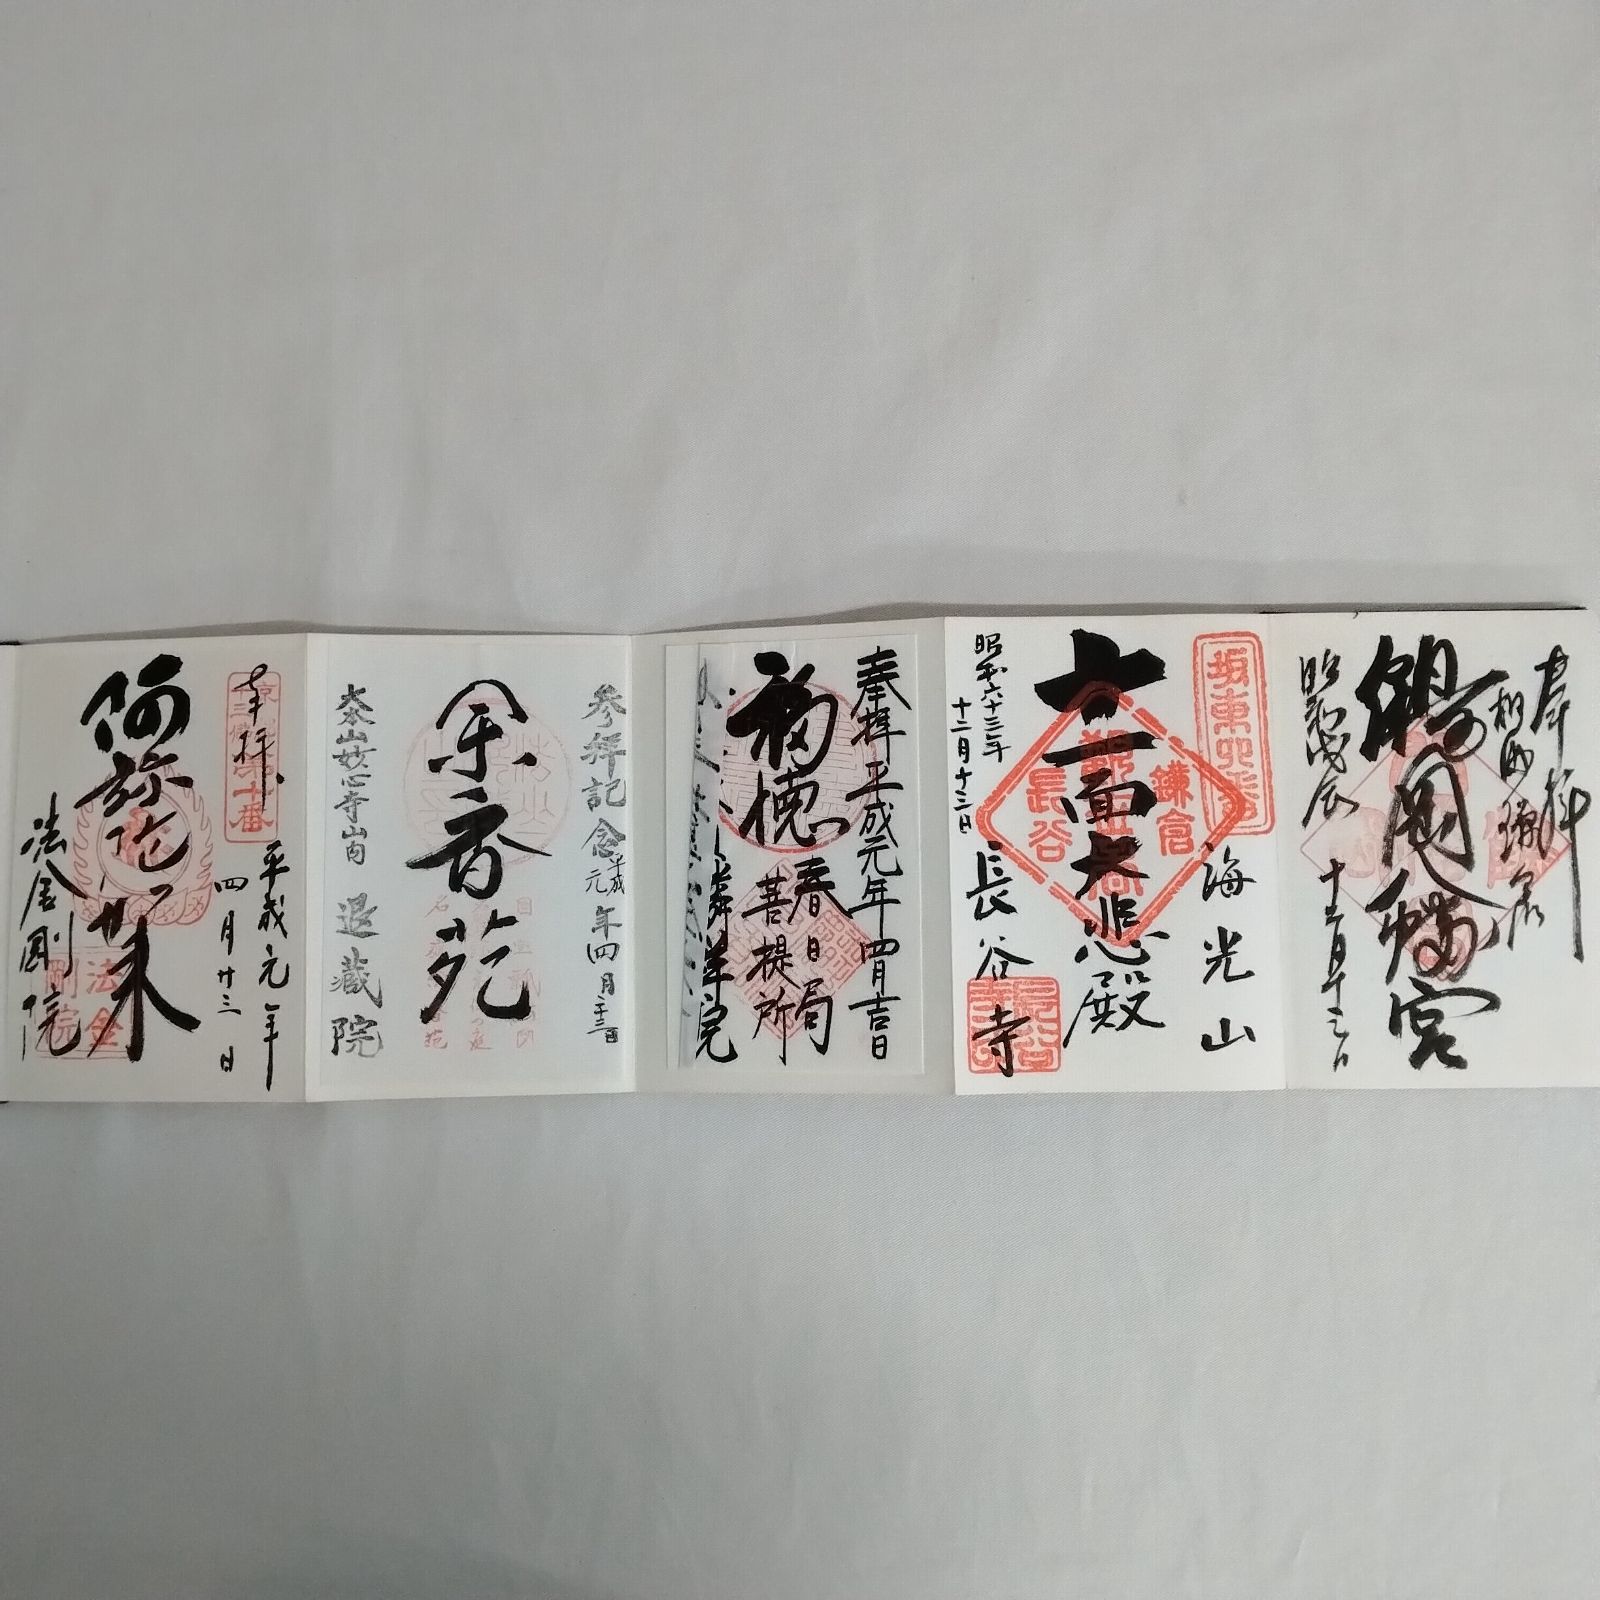 奉拝
相州鎌倉
鶴岡八幡宮
昭和戊辰
十二月十三日
坂東四番
海光山
十一面大悲殿
鎌倉
長谷
昭和六十三年
十二月十三日
長谷寺
奉拝 平成元年四月吉日
福徳
春日局
菩提所
麟祥院
参拝記念
平成元年四月二十三日
余香苑
大本山妙心寺山内
退蔵院
奉拝
平成元年
四月廿三日
阿弥陀如来
法金剛院